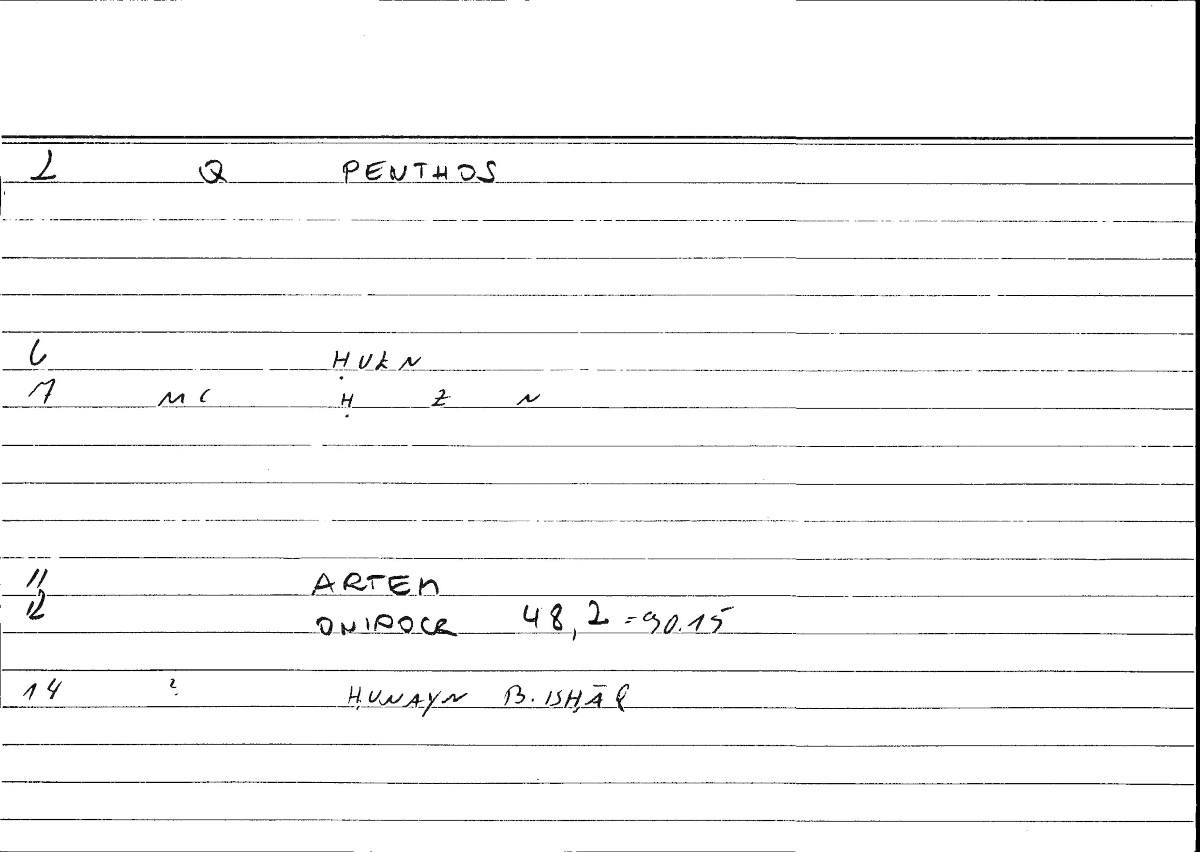 2 Q PENTHOS
6 ḤUZN
7 MC Ḥ Z N
11 ARTEM
12 ONIROCR 48,2 = 90.15
14 ? ḤUNAYN B. ISḤĀQ